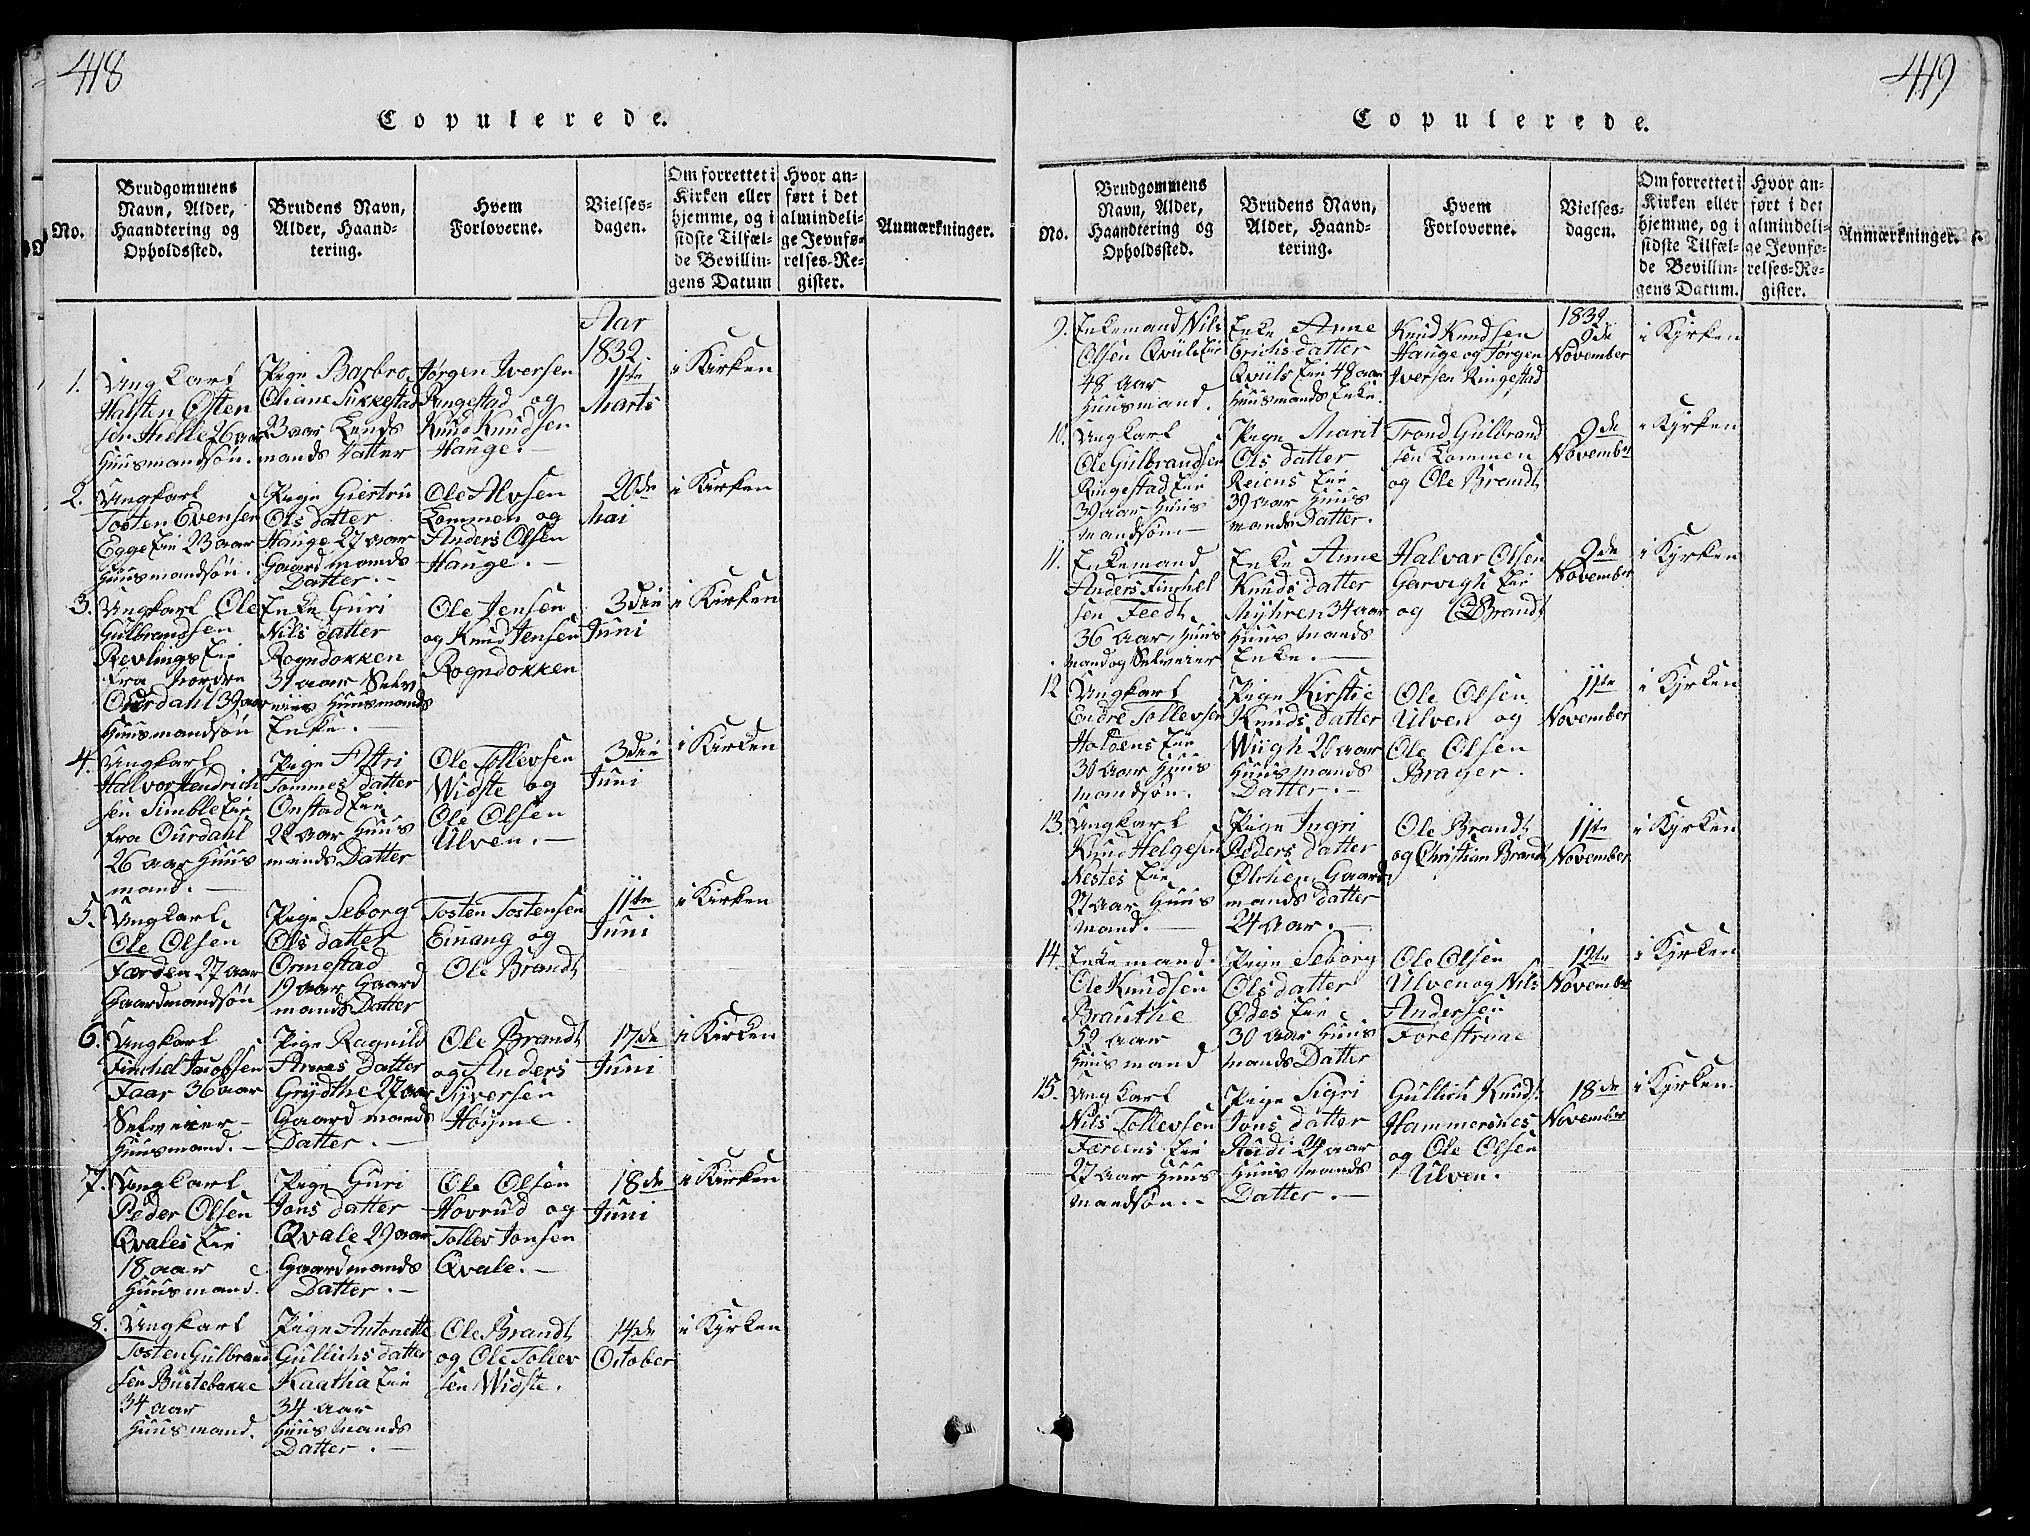 418
Copulerede.
No.
Brudgommens
Navn, Alder,
Haandtering og
Opholdssted.
Brudens Navn,
Alder, Haand-
tering.
Hvem
Forloverne.
Vielses-
dagen.
Om forrettet i
Kirken eller
hjemme, og i
sidste Tilfæl-
de Bevillin-
gens Datum
Hvor an-
ført i det
almindeli-
ge Jevnfø-
relses-Re-
gister.
Anmærkninger.
Aar
1832.
1.
Ungkarl
Halsten Osten
sen Helle 26 aar
Huusmandsøn.
Pige Barbro
Oliane Sukkestad
23 aar Lends
mands Datter
Jørgen Iversen
Ringestad og
Knud Knudsen
Hauge.
11te
Marts
i Kirken
2.
Ungkarl
Tosten Evensen
Egge Eie 23 aar
Huusmandsøn.
Pige Giertru
Ols datter
Hauge 27 aar
Gaardmands
Datter.
Ole Alvsen
Lommen og
Anders Olsen
Hauge.
20de
Mai
i Kirken
3.
Ungkarl Ole
Gulbrandsen
Revlings Eie
fra Nordre
Ourdahl 39 aar
Huusmandsøn
Enke Guri
Nils datter
Rogndokken
39 aar Selv
eies Huusmands
Enke.
Ole Jensen
og Knud Jensen
Rogndokken
3die
Juni
i Kirken
4.
Ungkarl
Halvor Hendrich
sen Simble Eie
fra Ourdahl
26 aar Huus
mand.
Pige Astri
Tommes datter
Onstad Eie
22 aar Huus
mands Datter
Ole Tollevsen
Widste og
Ole Olsen
Ulven.
3die
Juni
i Kirken
5.
Ungkarl
Ole Olsen
Færden 27 aar
Gaardmandsøn
Pige Seborg
Ols datter
Ormestad
19 aar Gaard
mands Datter
Tosten Tostensen
Einang og
Ole Brandt
11te
Juni
i Kirken
6.
Ungkarl
Finchel Jacobsen
Faar 36 aar
Selveier
Huusmand.
Pige Ragnild
Arnes Datter
Grydthe 27 aar
Gaardmands
Datter.
Ole Brandt
og Anders
Syversen
Høyme.
17de
Juni
i Kirken
7.
Ungkarl
Peder Olsen
Qvales Eie
18 aar
Huusmand.
Pige Guri
Jons datter
Qvale 29 aar
Gaardmands
Datter.
Ole Olsen
Hovrud og
Tollev Jonsen
Qvale.
18de
Juni
i Kirken
8.
Ungkarl
Tosten Gulbrand
sen Bustebakke
34 aar
Huusmand.
Pige Antonette
Gullichs datter
Kaatha Eie
34 aar
Huusmands
Datter.
Ole Brandt
og Ole Tollev
sen Widste.
14de
October
i Kyrken
419
Copulerede.
No.
Brudgommens
Navn, Alder,
Haandtering og
Opholdssted.
Brudens Navn,
Alder, Haand-
tering.
Hvem
Forloverne.
Vielses-
dagen.
Om forrettet i
Kirken eller
hjemme, og i
sidste Tilfæl-
de Bevillin-
gens Datum.
Hvor an-
ført i det
almindeli-
ge Jevnfø-
relses-Re-
gister.
Anmærkninger.
1832
9.
Enkemand Nils
Olsen Qvils Eie
48 aar
Huusmand.
Enke Anne
Erichs datter
Qvils Eie 48 aar
Huusmands Enke.
Knud Knudsen
Hauge og Jørgen
Iversen Ringestad
9de
November
i Kyrken
10.
Ungkarl
Ole Gulbrandsen
Ringestad Eie
39 aar Huus
mandsøn
Pige Marit
Ols datter
Reiens Eie
39 aar Huus
mands Datter.
Trond Gulbrand
sen Lommen
og Ole Brandt
9de
November
i Kyrken
11.
Enkemand
Anders Finchel
sen Feedt
36 aar, Huus
mand og Selveier
Enke Anne
Knuds datter
Myhren 34 aar
Huusmands
Enke.
Halvar Olsen
Garvigh Eie
og O Brandt
9de
November
i Kyrken
12
Ungkarl
Endre Tollevsen
Holdens Eie
30 aar Huus
mandsøn.
Pige Kirstie
Knuds datter
Wiigh 26 aar
Huusmands
Datter.
Ole Olsen
Ulven og
Ole Olsen
Brager.
11te
November
i Kyrken
13.
Ungkarl
Knud Helgesen
Nestes Eie
27 aar Huus
mand.
Pige Ingri
Peders datter
Ølchen Gaard
mands datter
24 aar.
Ole Brandt
og Christian Brandt
11te
November
i Kyrken
14.
Enkemand
Ole Knudsen
Brauthe
59 aar
Huusmand
Pige Seborg
Ols datter
Ødes Eie
30 aar Huus
mands Datter
Ole Olsen
Ulven og Nils
Andersen
Forestrune
12te
November
i Kyrken
15.
Ungkarl
Nils Tollevsen
Færdens Eie
27 aar Huus
mandsøn.
Pige Sigri
Jons datter
Rudi 24 aar
Huusmands
Datter.
Gullich Knuds.
Hammersnes
og Ole Olsen
Ulven.
18de
November
i Kyrken